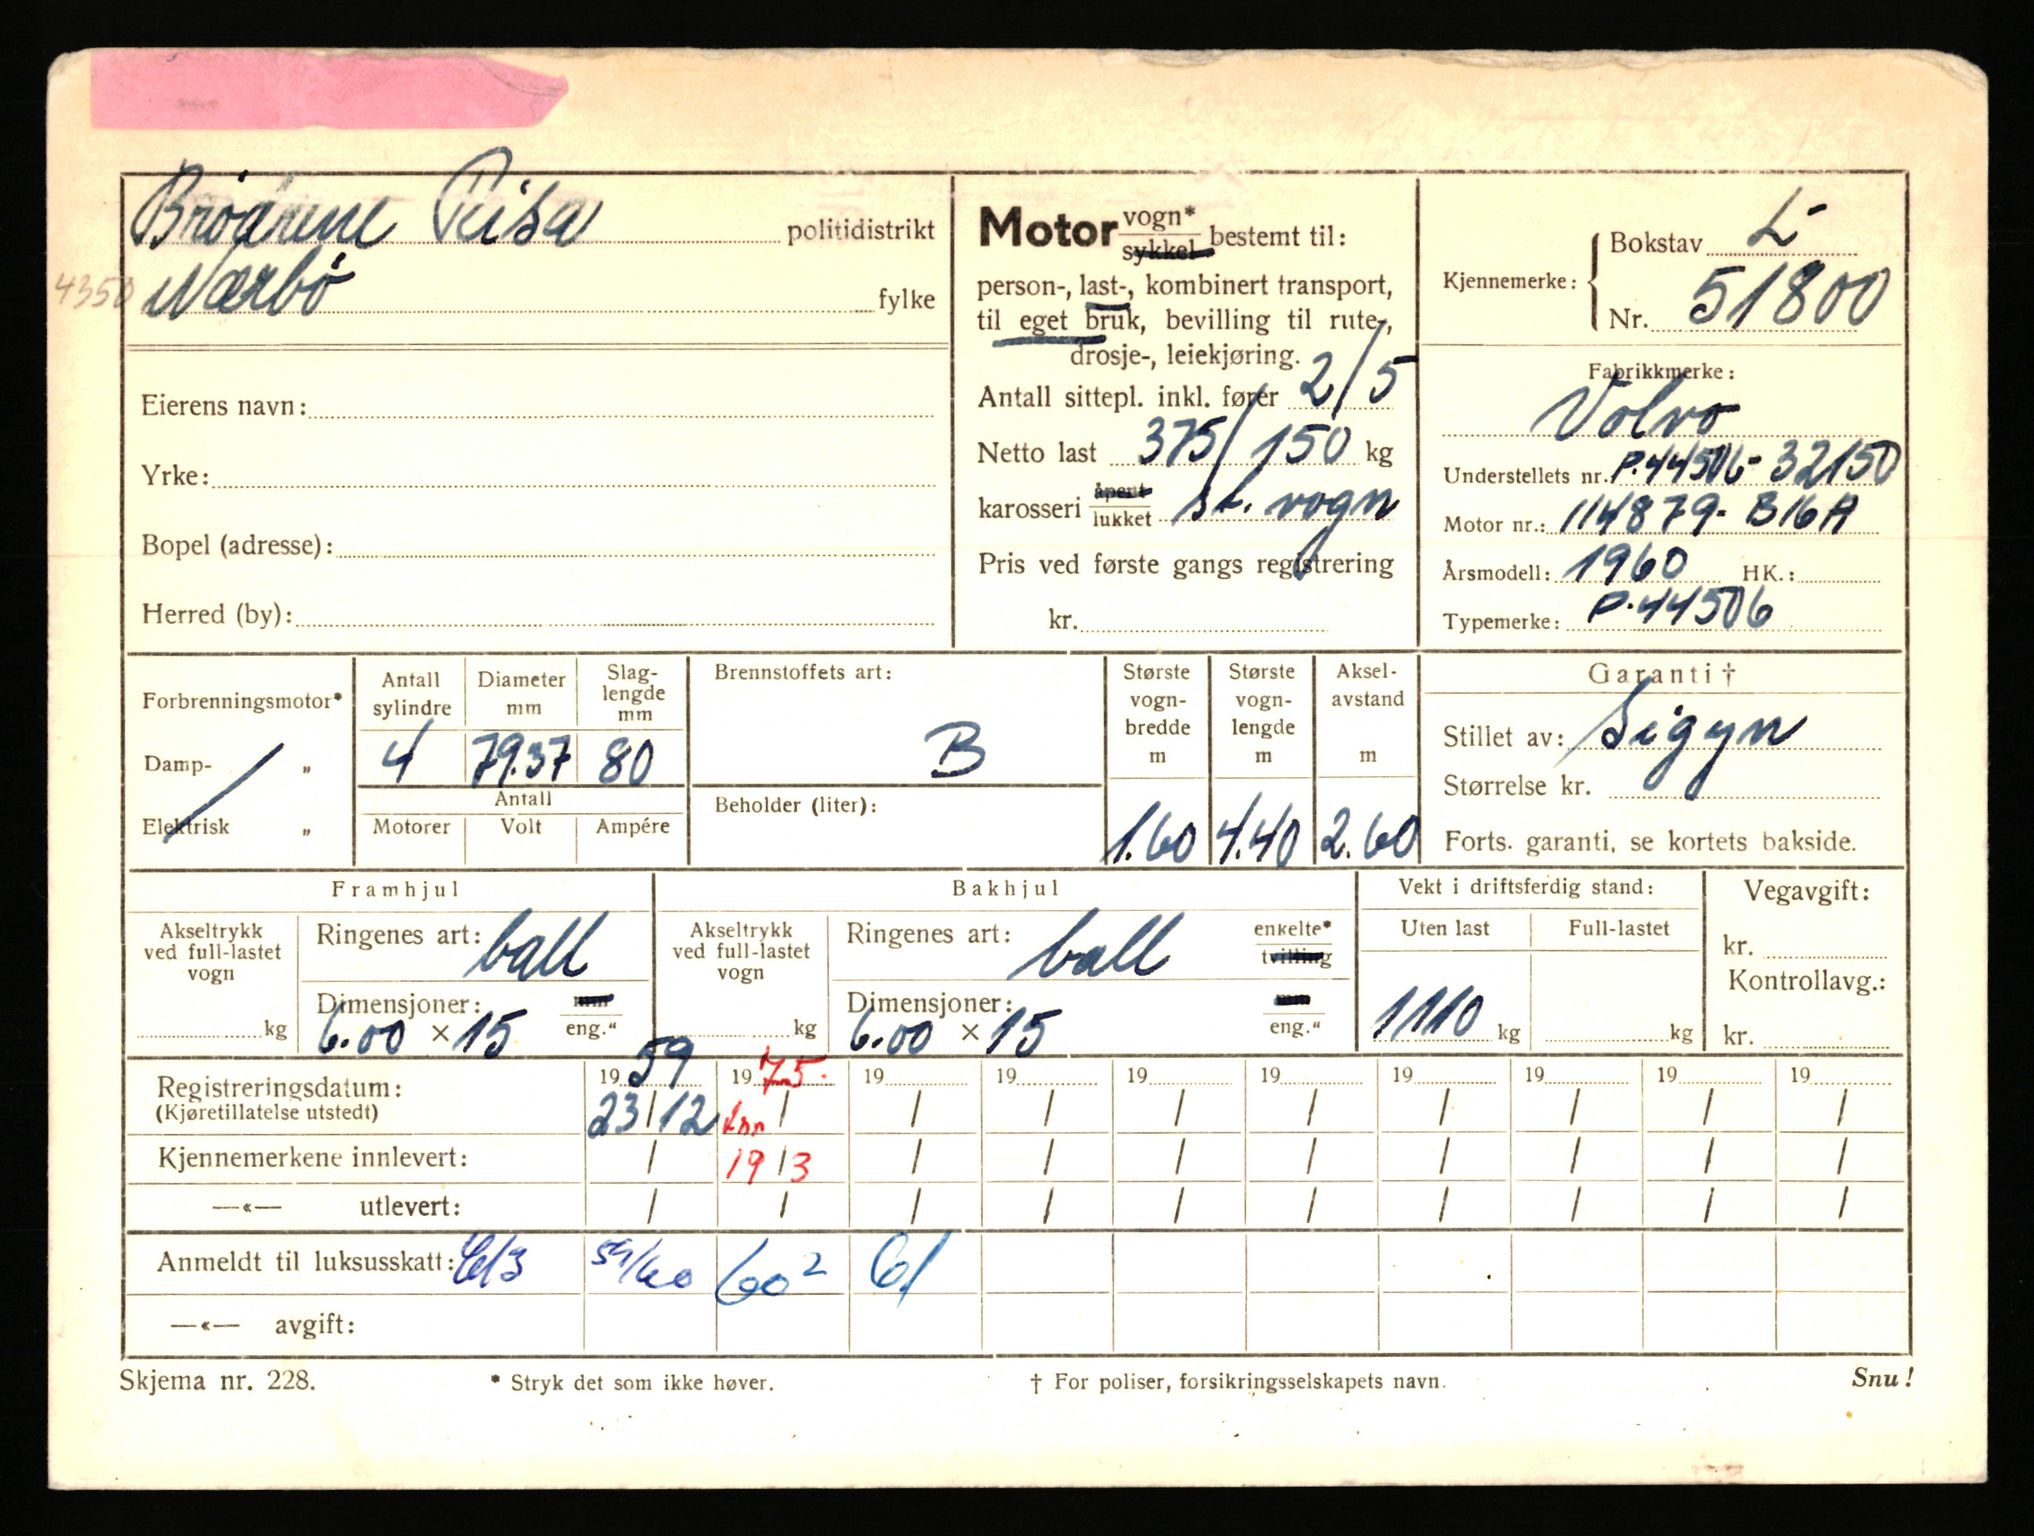 Brødrene Risa politidistrikt
4350 Nærbø fylke
Eierens navn:
Yrke:
Bopel (adresse):
Herred (by):
Motor vogn* sykkel bestemt til:
person-, last-, kombinert transport,
til eget bruk, bevilling til rute-,
drosje-, leiekjøring.
Antall sittepl. inkl. fører 2/5
Netto last 375/150 kg
karosseri åpent lukket st. vogn
Pris ved første gangs registrering
kr.
Kjennemerke: Bokstav L-
Nr. 51800
Fabrikkmerke:
Volvo
Understellets nr. P.44506-32150
Motor nr.: 114879- B16A
Årsmodell: 1960 HK.:
Typemerke: P.44506
Forbrenningsmotor*
Damp- „
Elektrisk „
Antall sylindre 4
Diameter mm 79.37
Slaglengde mm 80
Antall
Motorer Volt Ampére
Brennstoffets art:
B
Beholder (liter):
Største vognbredde m 1.60
Største vognlengde m 4.40
Akselavstand m 2.60
Garanti †
Stillet av: Sigyn
Størrelse kr.
Forts. garanti, se kortets bakside.
Framhjul
Akseltrykk ved full-lastet vogn kg
Ringenes art: ball
Dimensjoner: mm eng."
6.00 × 15
Bakhjul
Akseltrykk ved full-lastet vogn kg
Ringenes art: ball enkelte* tvilling
Dimensjoner: mm eng."
6.00 × 15
Vekt i driftsferdig stand:
Uten last Full-lastet
1110 kg kg
Vegavgift:
kr.
Kontrollavg.:
kr.
Registreringsdatum: 19 59 19 75. 19 19 19 19 19 19 19 19
(Kjøretillatelse utstedt) 23/12 / / / / / / / / /
Kjennemerkene innlevert: / 19/3 / / / / / / / /
—«— utlevert: / / / / / / / / / /
Anmeldt til luksusskatt: 59/60 60² 61
—«— avgift:
Skjema nr. 228. * Stryk det som ikke høver. † For poliser, forsikringsselskapets navn. Snu!